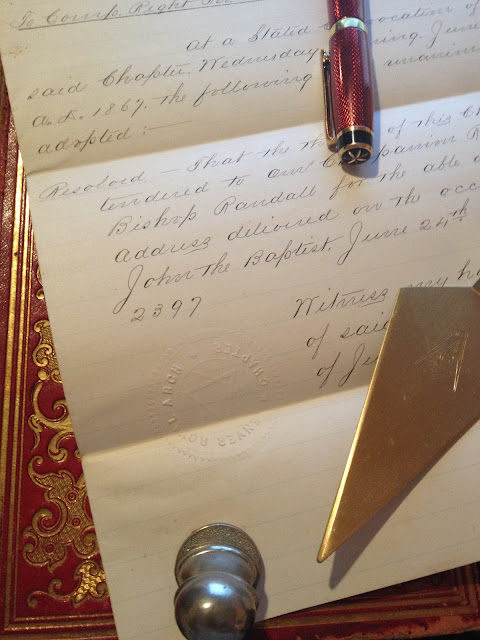 To Comp. Right Rev
At a Stated Convocation of
said Chapter. Wednesday evening, June
A.D. 1867. the following unanim
adopted :—
Resolved — That the th of this Ch
tendered to our Companion R
Bishop Randall for the able a
address delivered on the occ
John the Baptist, June 24th
2397
Witness my ha
of said
of Ju
DENVER ROYAL ARCH CHAPTER